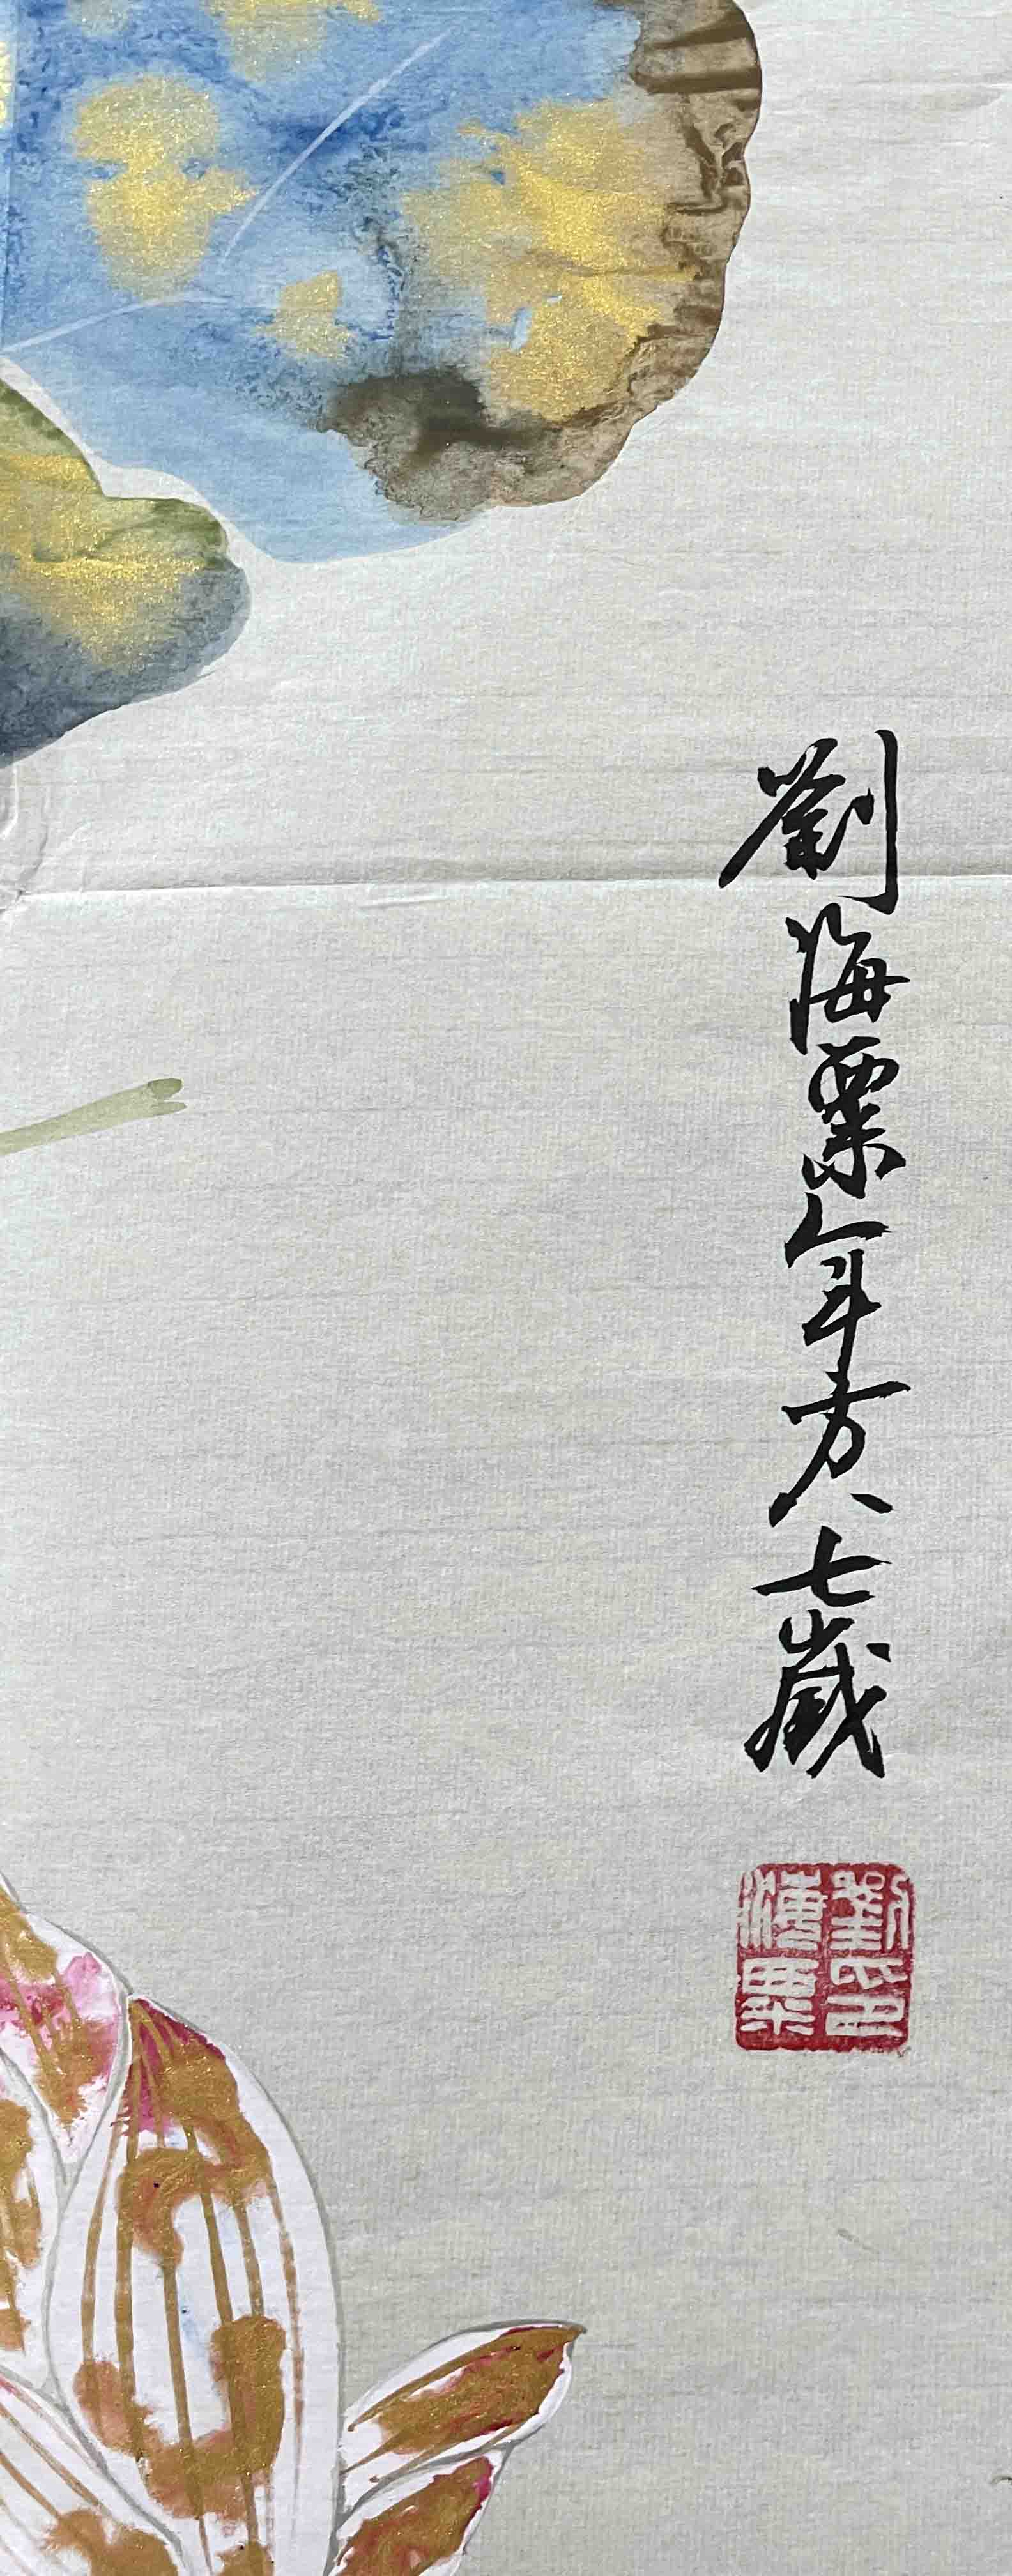 劉海粟年方八七歲
劉氏印
海粟